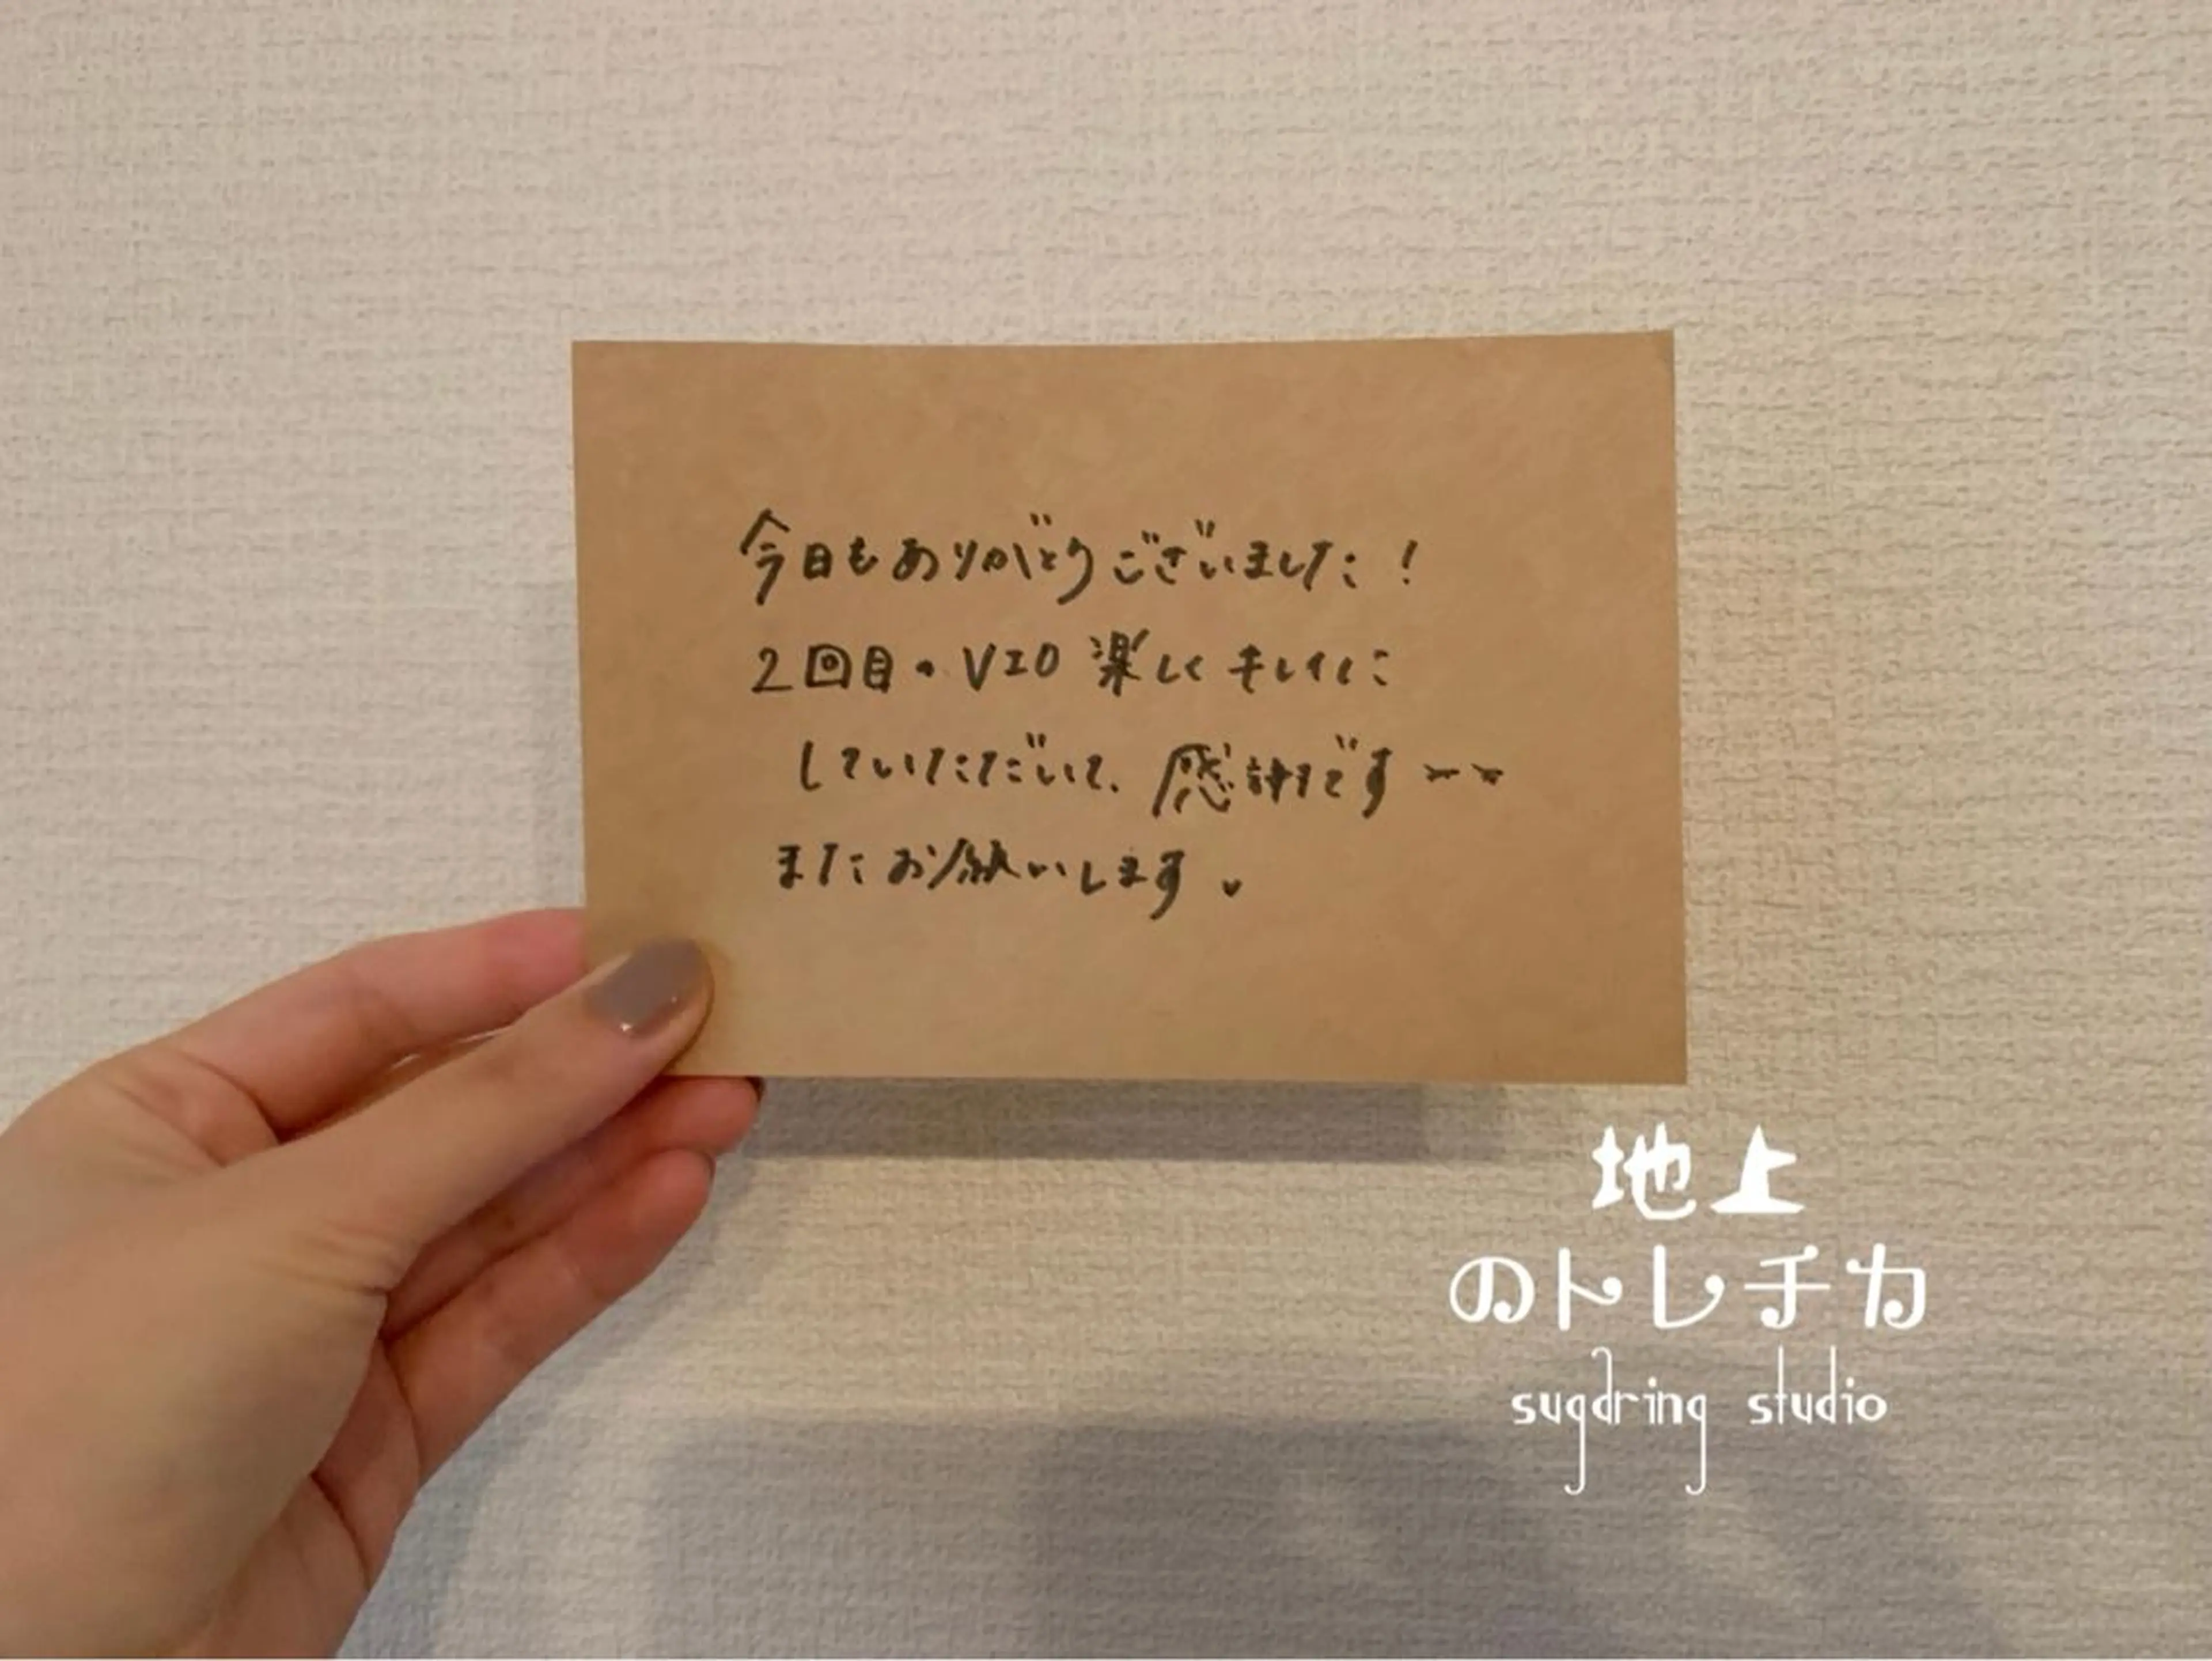 今日もありがとうございました！
2回目のVIO 楽しくキレイに
していただいて、感謝です
またお願いします。
地上
のトレチカ
sugaring studio